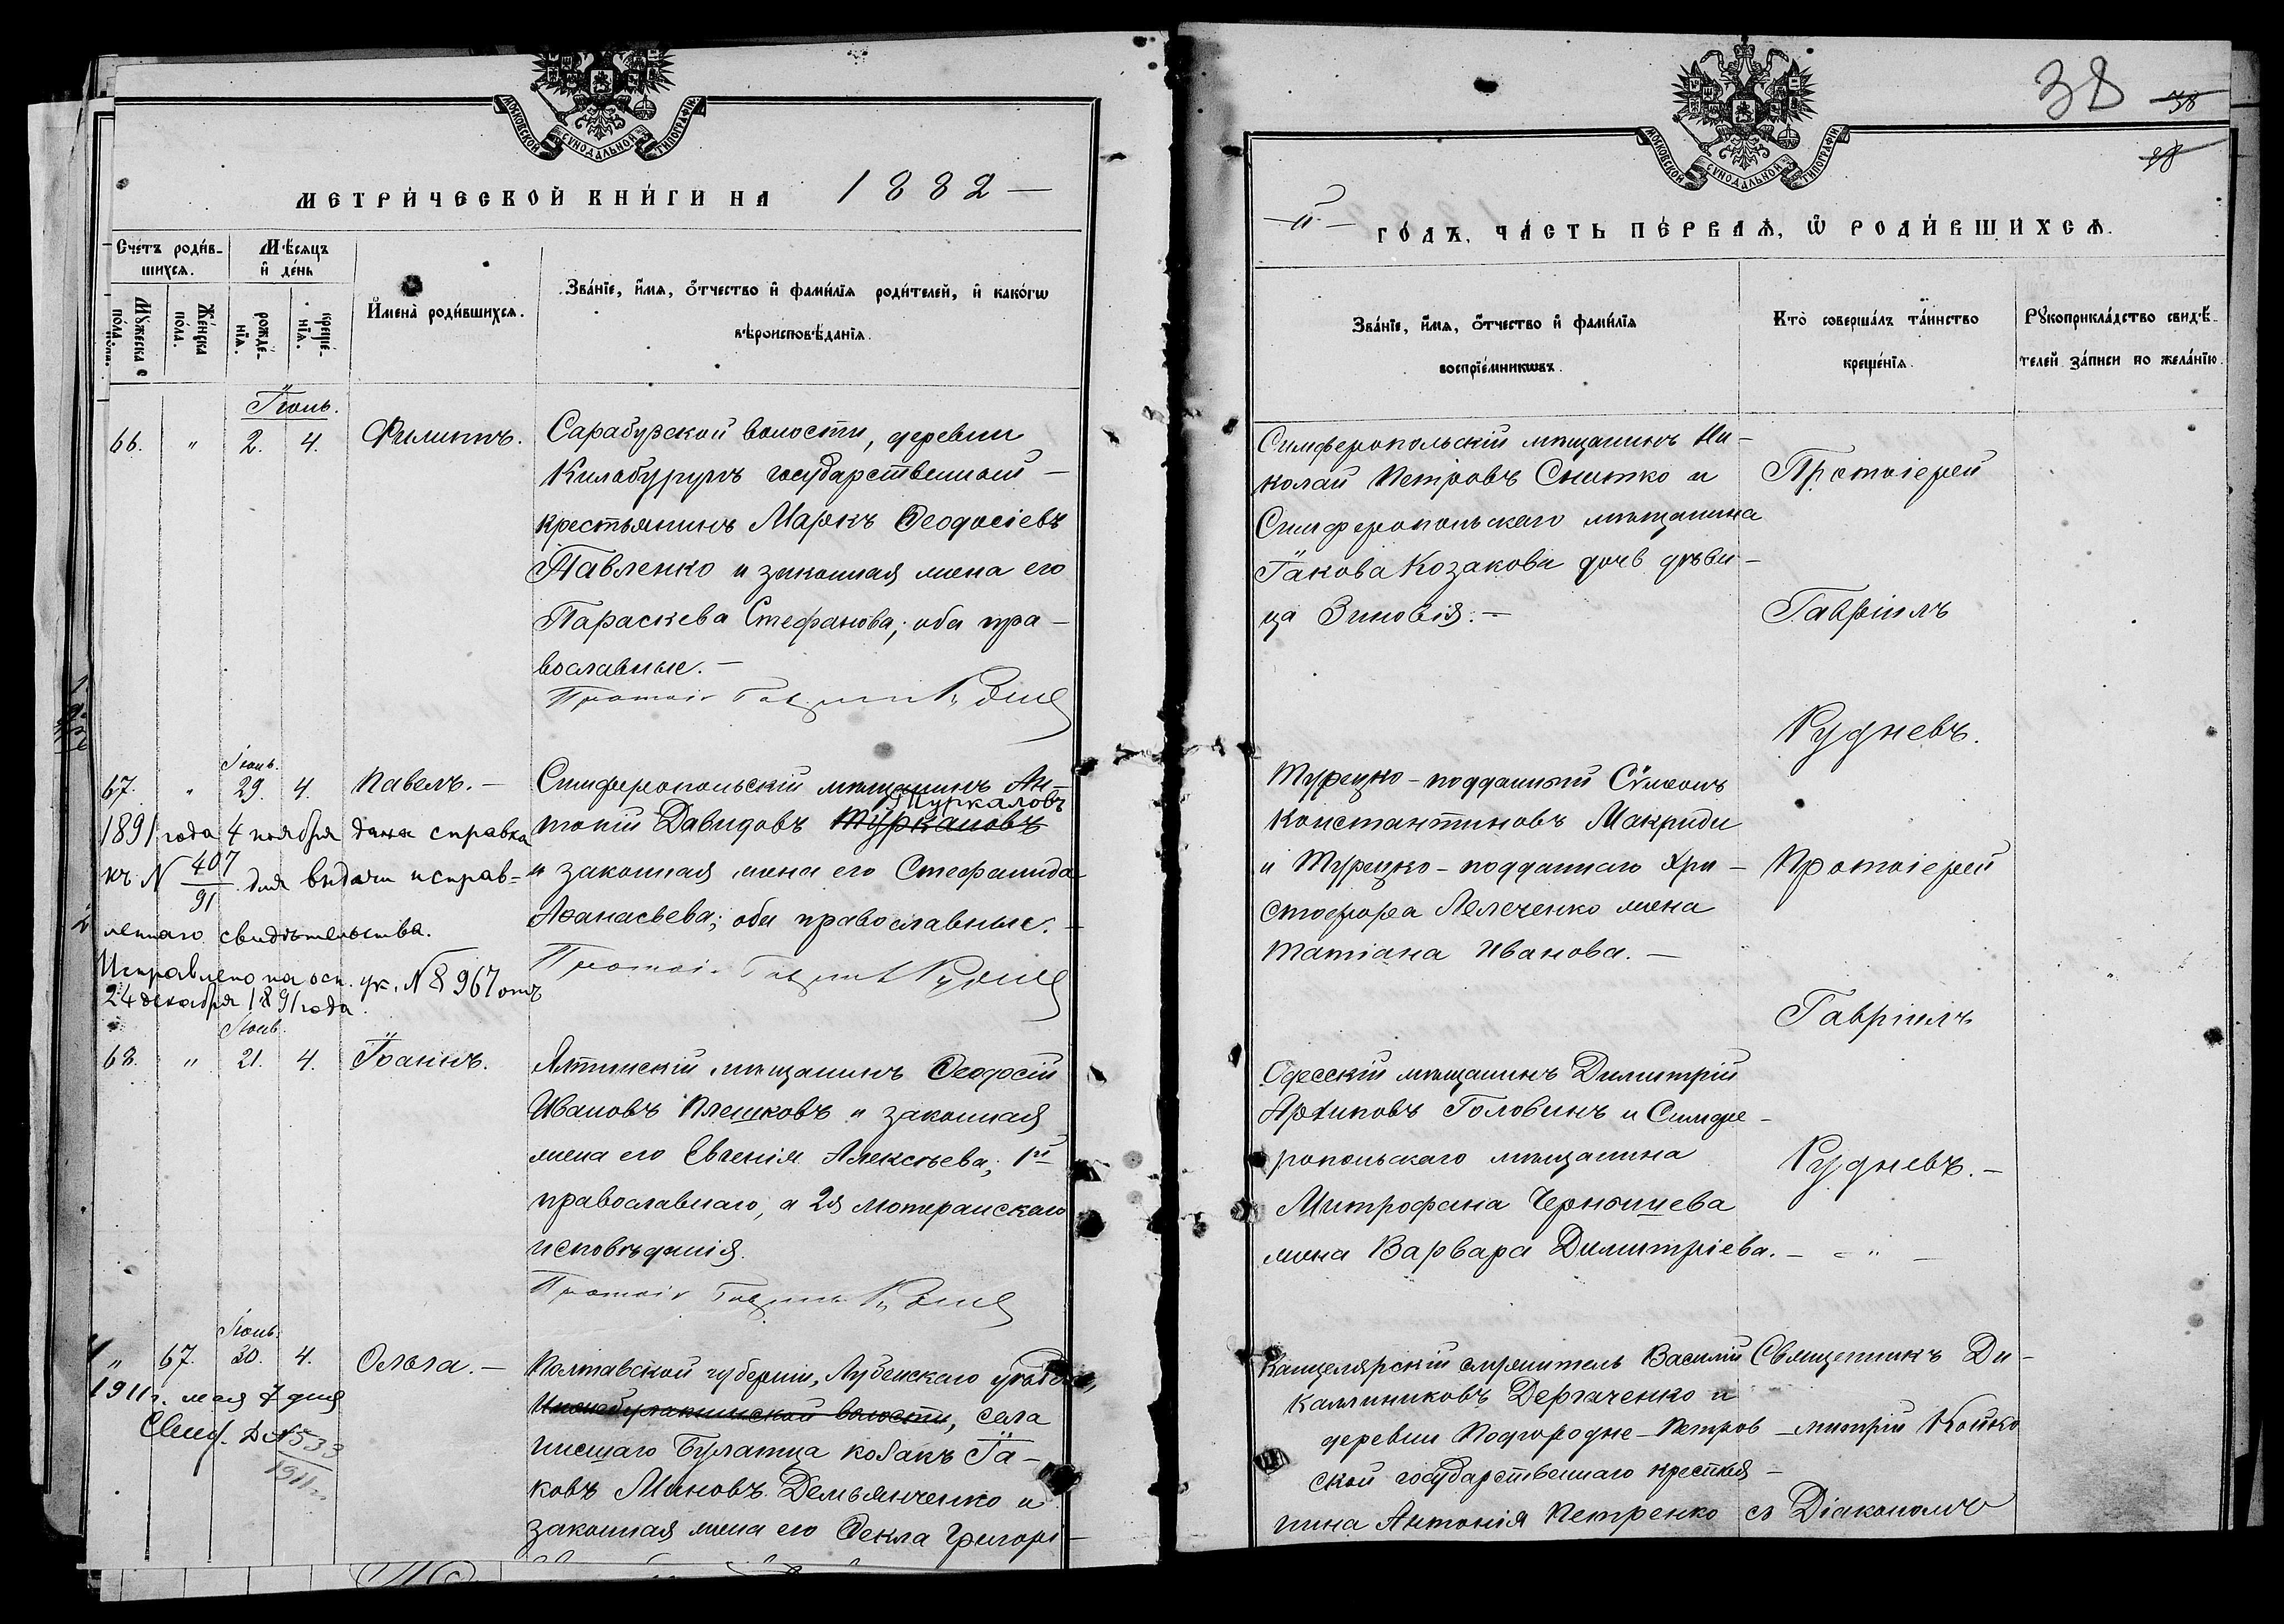 МОСКОВСКОЙ СѴНОДАЛЬНОЙ ТИПОГРАФІИ
МЕТРИ́ЧЕСКОЙ КНИ́ГИ НА 1882 —
Сче́тъ роди́в-
шихсѧ.
Мѣ́сѧцъ
и҆ де́нь
Мꙋ́жеска
по́ла.
Же́нска
по́ла.
рожде́-
нїѧ.
креще́-
нїѧ.
И҆мена̀ роди́вшихсѧ.
Зва́нїе, и҆́мѧ, ѻ҆́тчество и҆ фами́лїѧ роди́телей, и҆ како́гѡ
вѣроисповѣ́данїѧ.
Іюль.
66. " 2. 4. Филиппъ.
Сарабузской волости, деревни
Килабурунъ государственный
крестьянинъ Маркъ Ѳеодосіевъ
Павленко и законная жена его
Параскева Стефанова; оба пра-
вославные. —
Іюнь.
67. " 29. 4. Павелъ. —
Симферопольскій мѣщанинъ Ан-
Туркаловъ
тоній Давидовъ Туркановъ
и законная жена его Стефанида
Аѳанасьева; оба православные. —
1891 года 4 ноября дана справка
къ N 407/91 для выдачи исправ=
леннаго свидѣтельства.
Исправлено на осн. ук. N 8967 отъ
24 декабря 1891 года.
Іюнь.
68. " 21. 4. Іоаннъ.
Ялтинскій мѣщанинъ Ѳеодосій
Ивановъ Плешковъ и законная
жена его Евгенія Алексѣева; 1й
православнаго, а 2я лютеранскаго
исповѣданія.
Іюнь.
" 67. 30. 4. Ольга. —
1911 г. мая 7 дня
533
1911
Полтавской губерніи, Лубенскаго уѣзда,
волости, села
нисшаго Булатца козакъ Іа-
ковъ Миновъ Демьянченко и
законная жена его Ѳекла Григорі-
38
38
МОСКОВСКОЙ СѴНОДАЛЬНОЙ ТИПОГРАФІИ
—й— ГО́ДЪ, ЧА́СТЬ ПЕ́РВАѦ, Ѡ҆ РОДИ́ВШИХСѦ.
Зва́нїе, и҆́мѧ, ѻ҆́тчество и҆ фами́лїѧ
воспрїе́мникѡвъ.
Кто̀ соверша́лъ та́инство
креще́нїѧ.
Рꙋкоприкла́дство свидѣ́-
телей за́писи по жела́нїю.
Симферопольскій мѣщанинъ Ни-
колай Петровъ Снитко и
Симферопольскаго мѣщанина
Іакова Козакова дочь дѣви-
ца Зиновія. —
Протоіерей
Гавріилъ
Рудневъ.
Турецко-подданный Сѵмеонъ
Константиновъ Макриди
и Турецко-подданнаго Хри-
стофора Лелеченко жена
Татіана Иванова. —
Протоіерей
Гавріилъ
Рудневъ. —
Одесскій мѣщанинъ Димитрій
Архиповъ Головинъ и Симфе-
ропольскаго мѣщанина
Митрофана Чернышева
жена Варвара Димитріева. —
Канцелярскій служитель Василій
Каллиниковъ Дергаченко и
деревни Подгородне-Петров-
ской государственнаго крестья-
нина Антонія Петренко
Священникъ Ди-
митрій Койко
съ Діакономъ